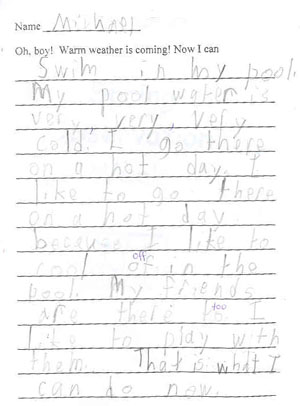 Name Michael
Oh, boy! Warm weather is coming! Now I can
Swim in my pool.
My pool water is
very, very, very
cold. I go there
on a hot day. I
like to go there
on a hot day
because I like to
off
cool of in the
pool. My friends
too
are there to. I
like to play with
them. That is what I
can do now.